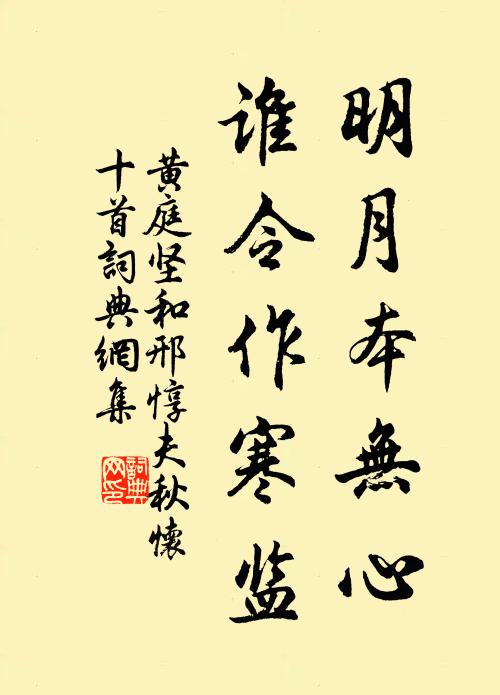 明月本無心
谁令作寒监
黄庭坚和邢惇夫秋懷
十首詞典網集
詞典
网印